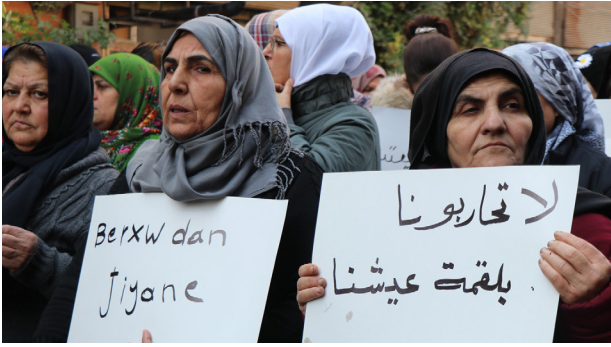 Berxwdan
Jiyane
لا تحاربونا
بلقمة عيشنا